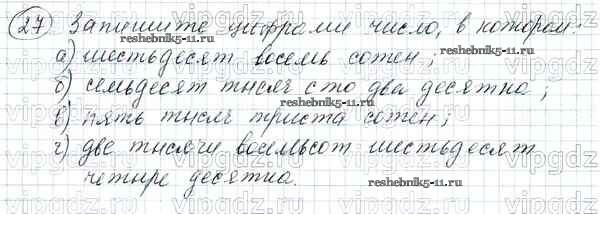 27 Запишите цифрами число, в котором:
reshebnik5-11.ru
а) шестьдесят восемь сотен;
reshebnik5-11.ru
б) семьдесят тысяч сто два десятка;
reshebnik5-11.ru
в) пять тысяч триста сотен;
г) две тысячи восемьсот шестьдесят
четыре десятка.
reshebnik5-11.ru
vipgdz vipgdz vipgdz vipgdz